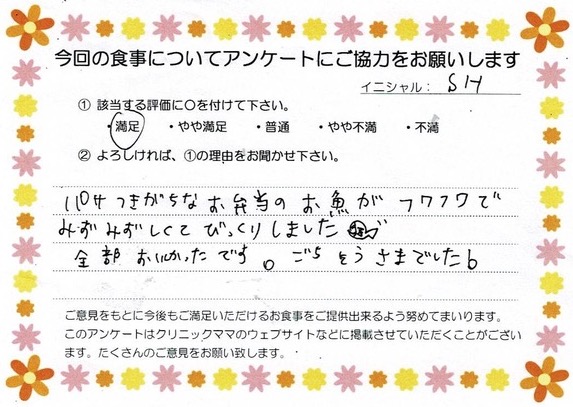 今回の食事についてアンケートにご協力をお願いします
イニシャル: SH
① 該当する評価に○を付けて下さい。
・満足 ・やや満足 ・普通 ・やや不満 ・不満
② よろしければ、①の理由をお聞かせ下さい。
パサつきがちなお弁当のお魚がフワフワで
みずみずしくてびっくりしました
全部おいしかったです。ごちそうさまでした。
ご意見をもとに今後もご満足いただけるお食事をご提供出来るよう努めてまいります。
このアンケートはクリニックママのウェブサイトなどに掲載させていただくことがござい
ます。たくさんのご意見をお願い致します。